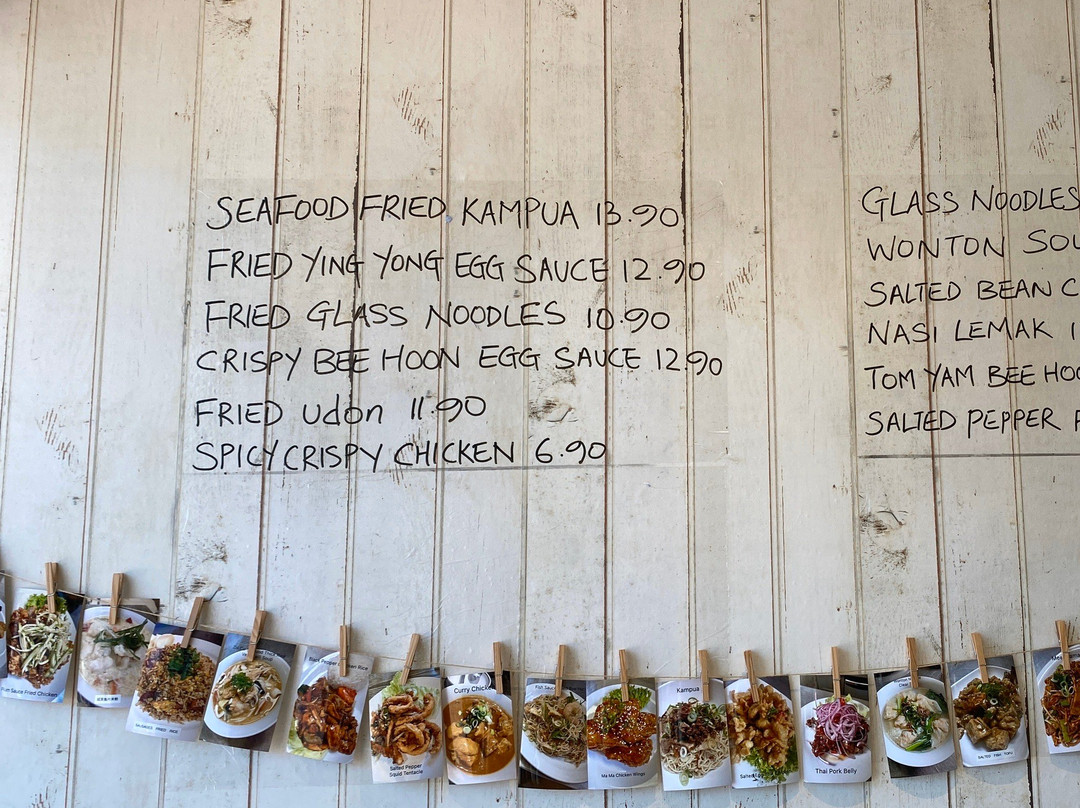 SEAFOOD FRIED KAMPUA 13.90
FRIED YING YONG EGG SAUCE 12.90
FRIED GLASS NOODLES 10.90
CRISPY BEE HOON EGG SAUCE 12.90
FRIED udon 11.90
SPICY CRISPY CHICKEN 6.90
GLASS NOODLES
WONTON SOU
SALTED BEAN C
NASI LEMAK 1
TOM YAM BEE HOO
SALTED PEPPER
Sauce Fried Chicken
SAUSAGE FRIED RICE
Rice
Salted Pepper
Squid Tentacle
Curry Chicken
Ma Ma Chicken Wings
Kampua
Salted
Thai Pork Belly